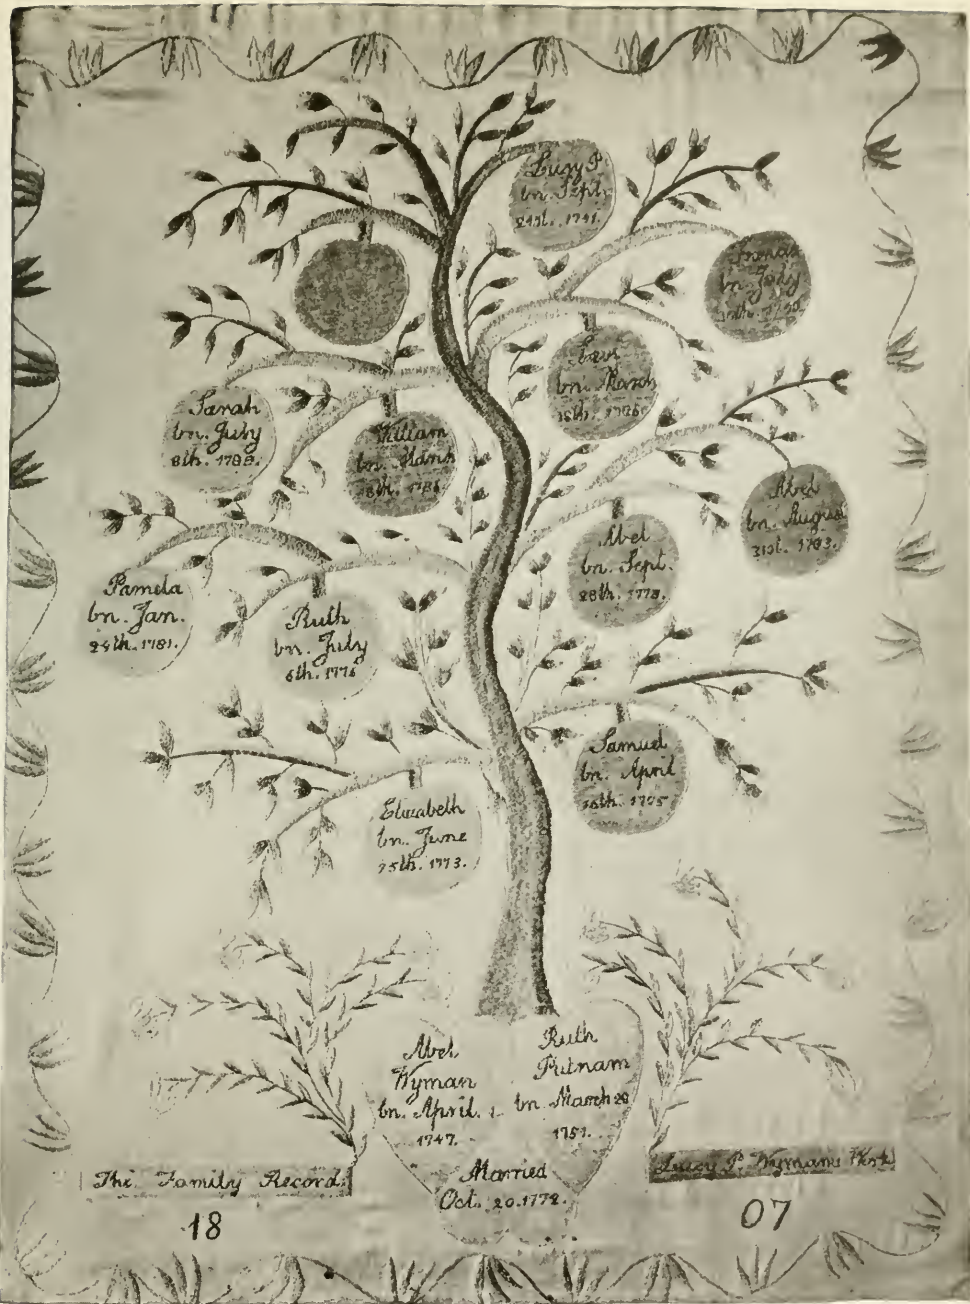 Lucy P.
bn. Sept.
21st. 1791.
bn. July
Levi
bn. March
Sarah
bn. July
8th. 1788.
William
bn. March
8th. 1786
Abel
bn. August
31st. 1783.
Abel
bn. Sept.
28th. 1778.
Pamela
bn. Jan.
24th. 1781.
Ruth
bn. July
6th. 1776
Samuel
bn. April
1775
Elizabeth
bn. June
25th. 1773.
Abel
Wyman
bn. April. 1
1747.
Ruth
Putnam
bn. March 20
1751.
Married
Oct. 20. 1772.
The Family Record.
Lucy P. Wymans Work
18
07